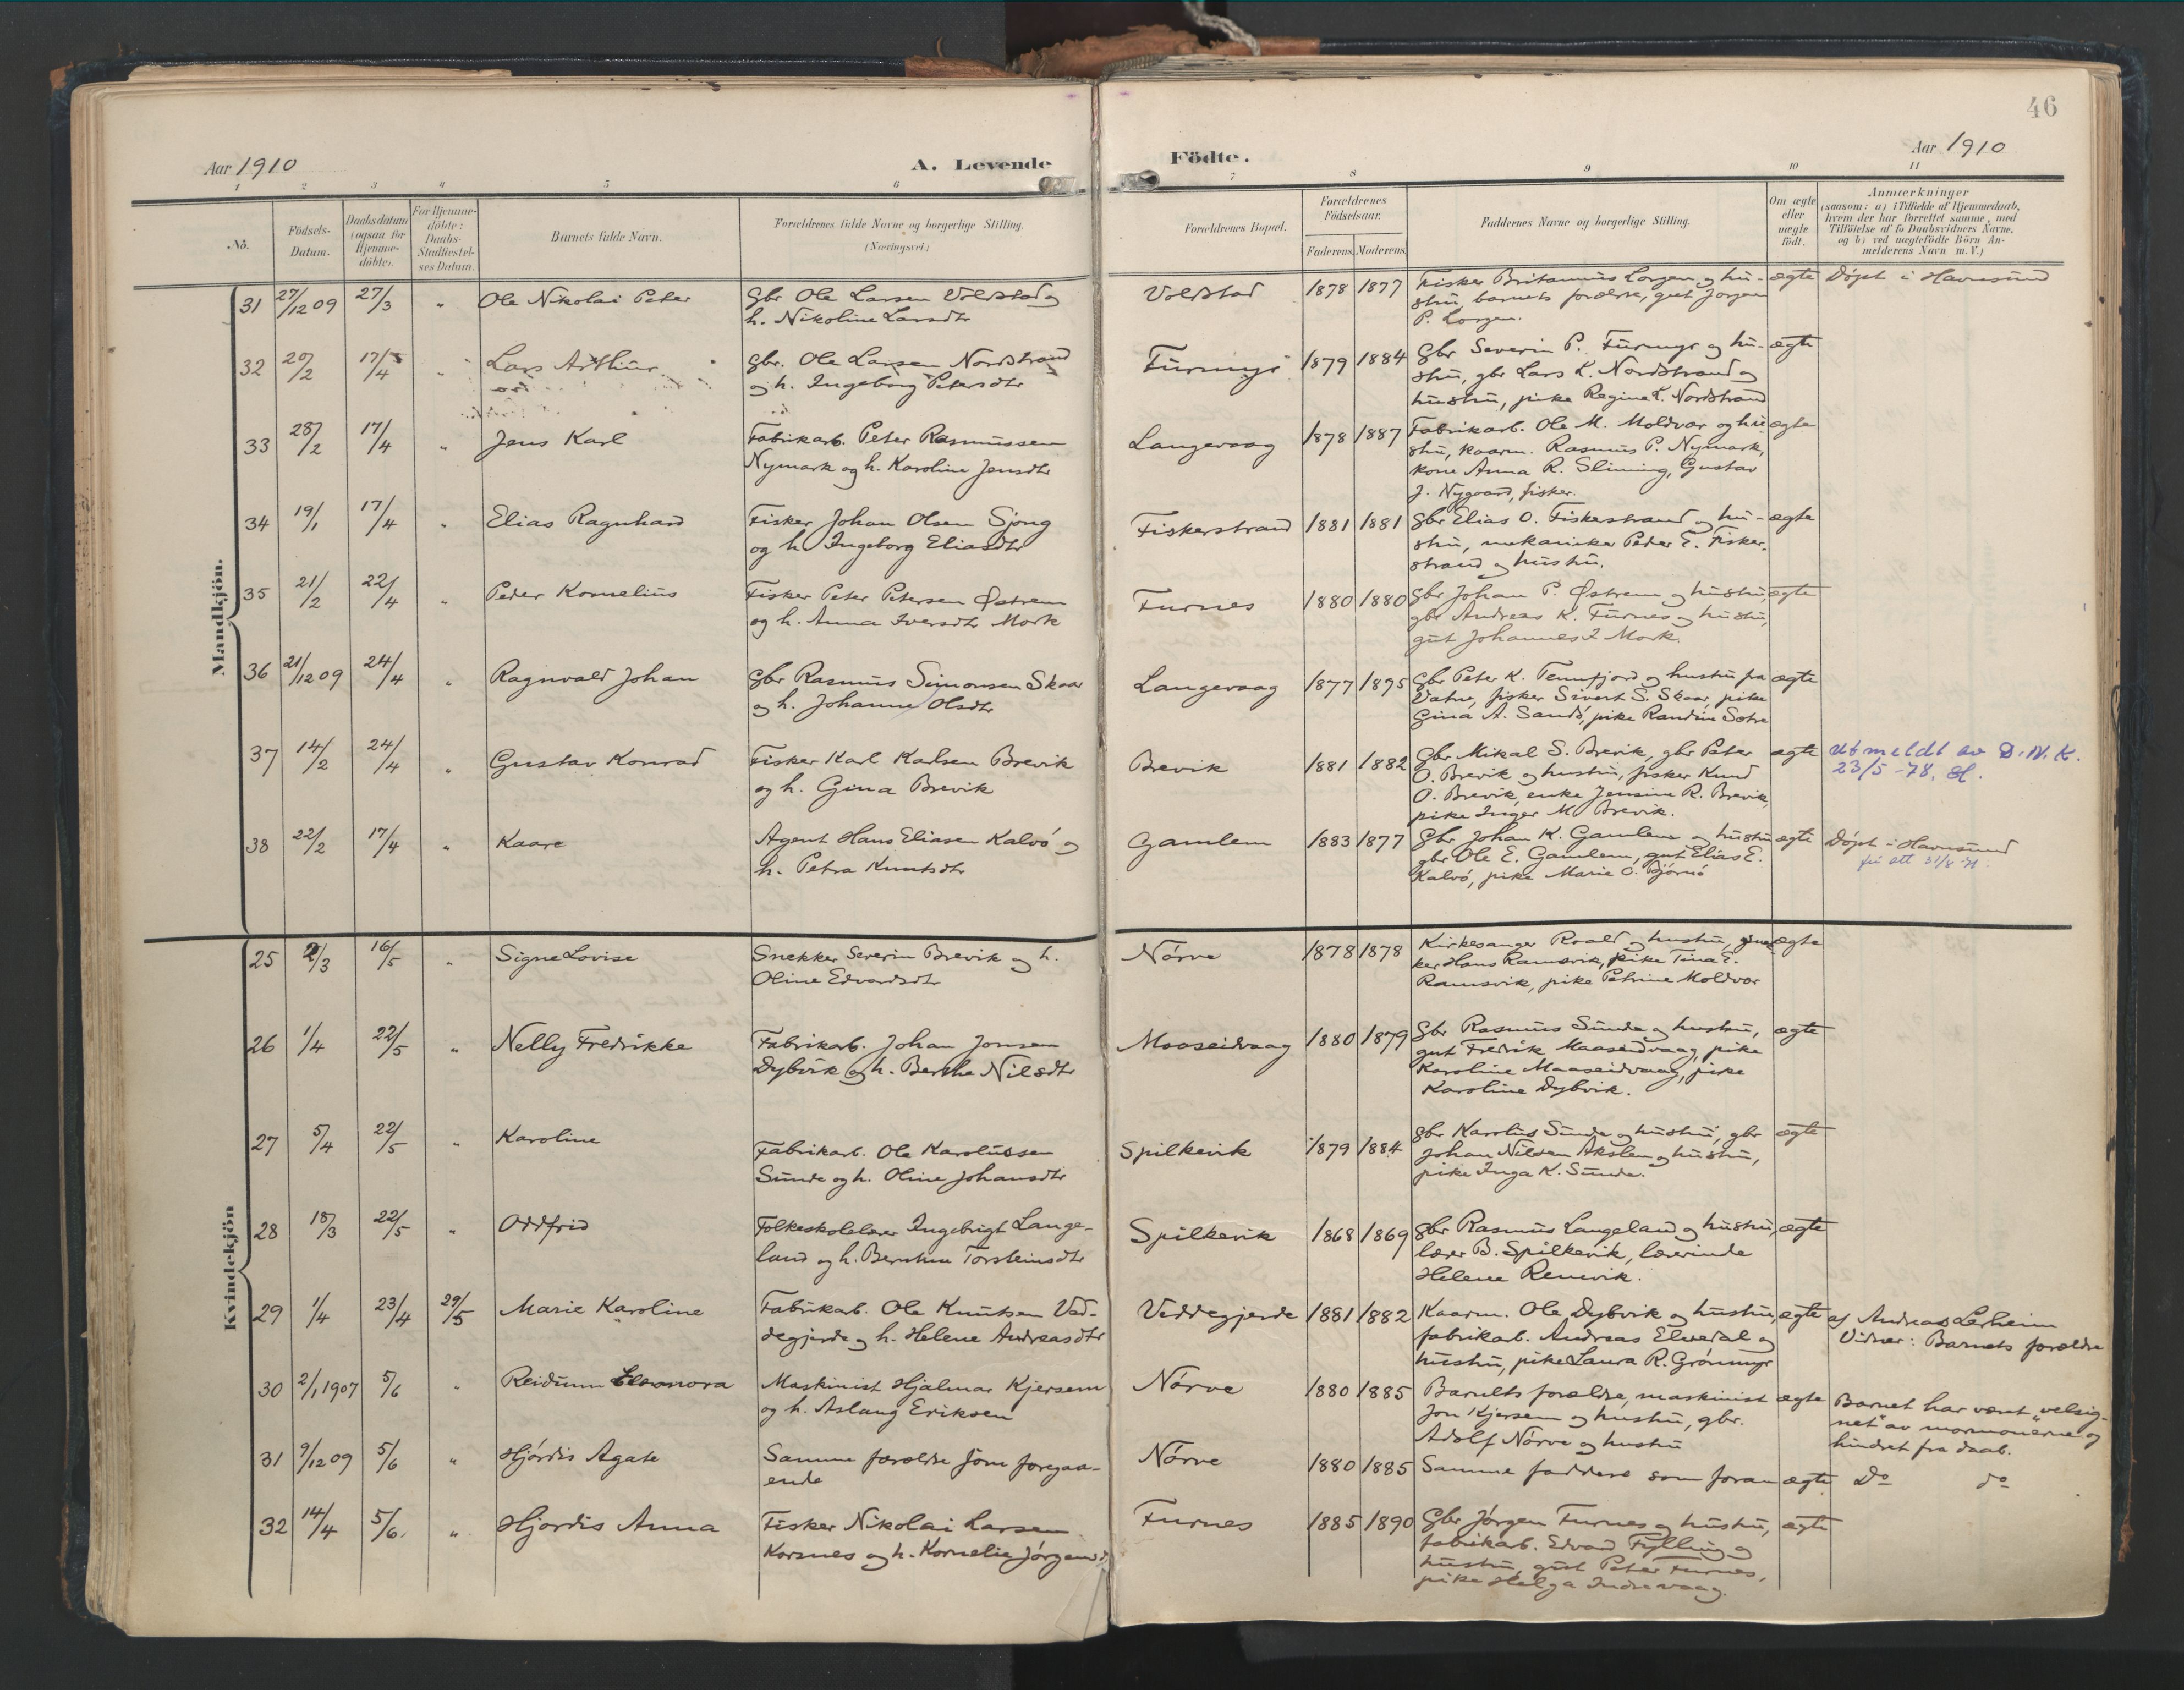 46
Aar 1910
A. Levende
Fødte.
Aar 1910
1 2 3 4 5 6 7 8 9 10 11
No.
Födsels-
Datum.
Daabsdatum
(ogsaa for
Hjemme-
döbte).
For Hjemme-
döbte:
Daabs-
Stadfæstel-
ses Datum.
Barnets fulde Navn.
Forældrenes fulde Navne og borgerlige Stilling.
(Næringsvei.)
Forældrenes Bopæl.
Forældrenes
Födselsaar.
Faderens. Moderens.
Faddernes Navne og borgerlige Stilling.
Om ægte
eller
uægte
födt.
Anmærkninger
(saasom: a) i Tilfælde af Hjemmedaab,
hvem der har forrettet samme, med
Tilföielse af to Daabsvidners Navne,
og b) ved uægtefödte Börn An-
melderens Navn m. V.)
Mandkjön.
31 27/12 09 27/3 " Ole Nikolai Peter
Gbr Ole Larsen Voldstad og
h. Nikoline Larsdtr
Voldstad 1878 1877
Fisker Britanius Lorgen og hu-
stru, barnets forældre, gut Jørgen
P. Lorgen.
ægte Døpt i Havnsund
32 20/2 17/4 " Lars Arthur
gbr. Ole Larsen Nordstrand
og h. Ingeborg Petersdtr
Furmyr 1879 1884
Gbr Severin P. Furmyr og hu-
stru, gbr Lars L. Nordstrand og
hustru, pike Regine L. Nordstrand
ægte
33 28/2 17/4 " Jens Karl
Fabrikarb. Peter Rasmussen
Nymark og h. Karoline Jensdtr
Langevaag 1878 1887
Fabrikarb. Ole M. Moldvær og hu-
stru, kaarm. Rasmus P. Nymark,
kone Anna R. Slinning, Gustav
J. Nygaard, fisker.
ægte
34 19/1 17/4 " Elias Ragnhard
Fisker Johan Olsen Sjong
og h Ingeborg Eliasdtr
Fiskerstrand 1881 1881
Gbr Elias O. Fiskerstrand og hu-
stru, mekaniker Peder E. Fisker-
strand og hustru.
ægte
35 21/2 22/4 " Peder Kornelius
Fisker Peter Petersen Østrem
og h. Anna Iversdtr Mork
Furnes 1880 1880
Gbr Johan P. Østrem og hustru,
gbr Andreas K. Furnes og hustru,
gut Johannes I Mork.
ægte
36 21/12 09 24/4 " Ragnvald Johan
Gbr Rasmus Simonsen Skaar
og h. Johanne Olsdtr
Langevaag 1877 1895
Gbr Peter K. Tennfjord og hustru fra
Vatne, fisker Sivert S. Skaar, pike
Gina A. Sandö, pike Randine Sotra
ægte
37 14/2 24/4 " Gustav Konrad
Fisker Karl Karlsen Brevik
og h. Gina Brevik
Brevik 1881 1882
Gbr Mikal S. Brevik, gbr Peter
O. Brevik og hustru, fisker Knud
O. Brevik, enke Jensine R. Brevik,
pike Inger M Brevik.
ægte
utmeldt av D.N.K.
23/5-78.
38 22/2 17/4 " Kaare
Agent Hans Eliasen Kalvö og
h. Petra Knutsdtr
Gamlem 1883 1877
Gbr Johan K. Gamlem og hustru
gbr Ole E. Gamlem, gut Elias E.
Kalvö, pike Marie O. Bjørnö
ægte Døpt i Havnsund
Kvindekjön
25 2/3 16/5 " Signe Lovise
Snekker Severin Brevik og h.
Oline Edvardsdtr
Nörve 1878 1878
Kirkesanger Roald og hustru,
ker Hans Ramsvik, pike Tina E.
Ramsvik, pike Petrine Moldvær
ægte
26 1/4 22/5 " Nelly Fredrikke
Fabrikarb. Johan Jonsen
Dybvik og h. Berthe Nilsdtr
Maaseidvaag 1880 1879
Gbr Rasmus Sunde og hustru,
gut Fredrik Maaseidvaag, pike
Karoline Maaseidvaag, pike
Karoline Dybvik.
ægte
27 5/4 22/5 " Karoline
Fabrikarb. Ole Karolussen
Sunde og h. Oline Johansdtr
Spilkevik 1879 1884
Gbr Karolus Sunde og hustru, gbr
Johan Nilsen Akslen og hustru,
pike Inga K. Sunde.
ægte
28 18/3 22/5 " Oddfrid
Folkeskolelærer Ingebrigt Lange-
land og h. Berntine Torsteinsdtr
Spilkevik 1868 1869
Gbr Rasmus Langeland og hustru,
lærer B. Spilkevik, lærerinde
Helene Renevik.
ægte
29 1/4 23/4 29/5 Marie Karoline
Fabrikarb. Ole Knutsen Ved-
degjerde og h. Helene Andreasdtr
Veddegjerde 1881 1882
Kaarm. Ole Dybvik og hustru,
fabrikarb. Andreas Elvedal og
hustru, pike Laura R. Grönmyr
ægte
af Andreas Lerheim
Vidner: Barnets forældre
30 2/1 1907 5/6 " Reidunn Eleonora
Maskinist Hjalmar Kjersem
og h. Aslaug Eriksen
Nörve 1880 1885
Barnets forældre, maskinist
Jon Kjersem og hustru, gbr.
Adolf Nörve og hustru
ægte
Barnet har været "velsig-
net" av mormonerne og
hindret fra daab.
31 9/12 09 5/6 " Hjördis Agate
Samme forældre som foregaa-
ende
Nörve 1880 1885
Samme faddere som foran
ægte Do do
32 14/4 5/6 " Hjordis Anna
Fisker Nikolai Larsen
Korsnes og h. Kornelie Jørgensd
Furnes 1885 1890
Gbr Jörgen Furnes og hustru,
fabrikarb. Edvard Fylling og
hustru, gut Peter Furnes,
pike Helga Indrevaag.
ægte